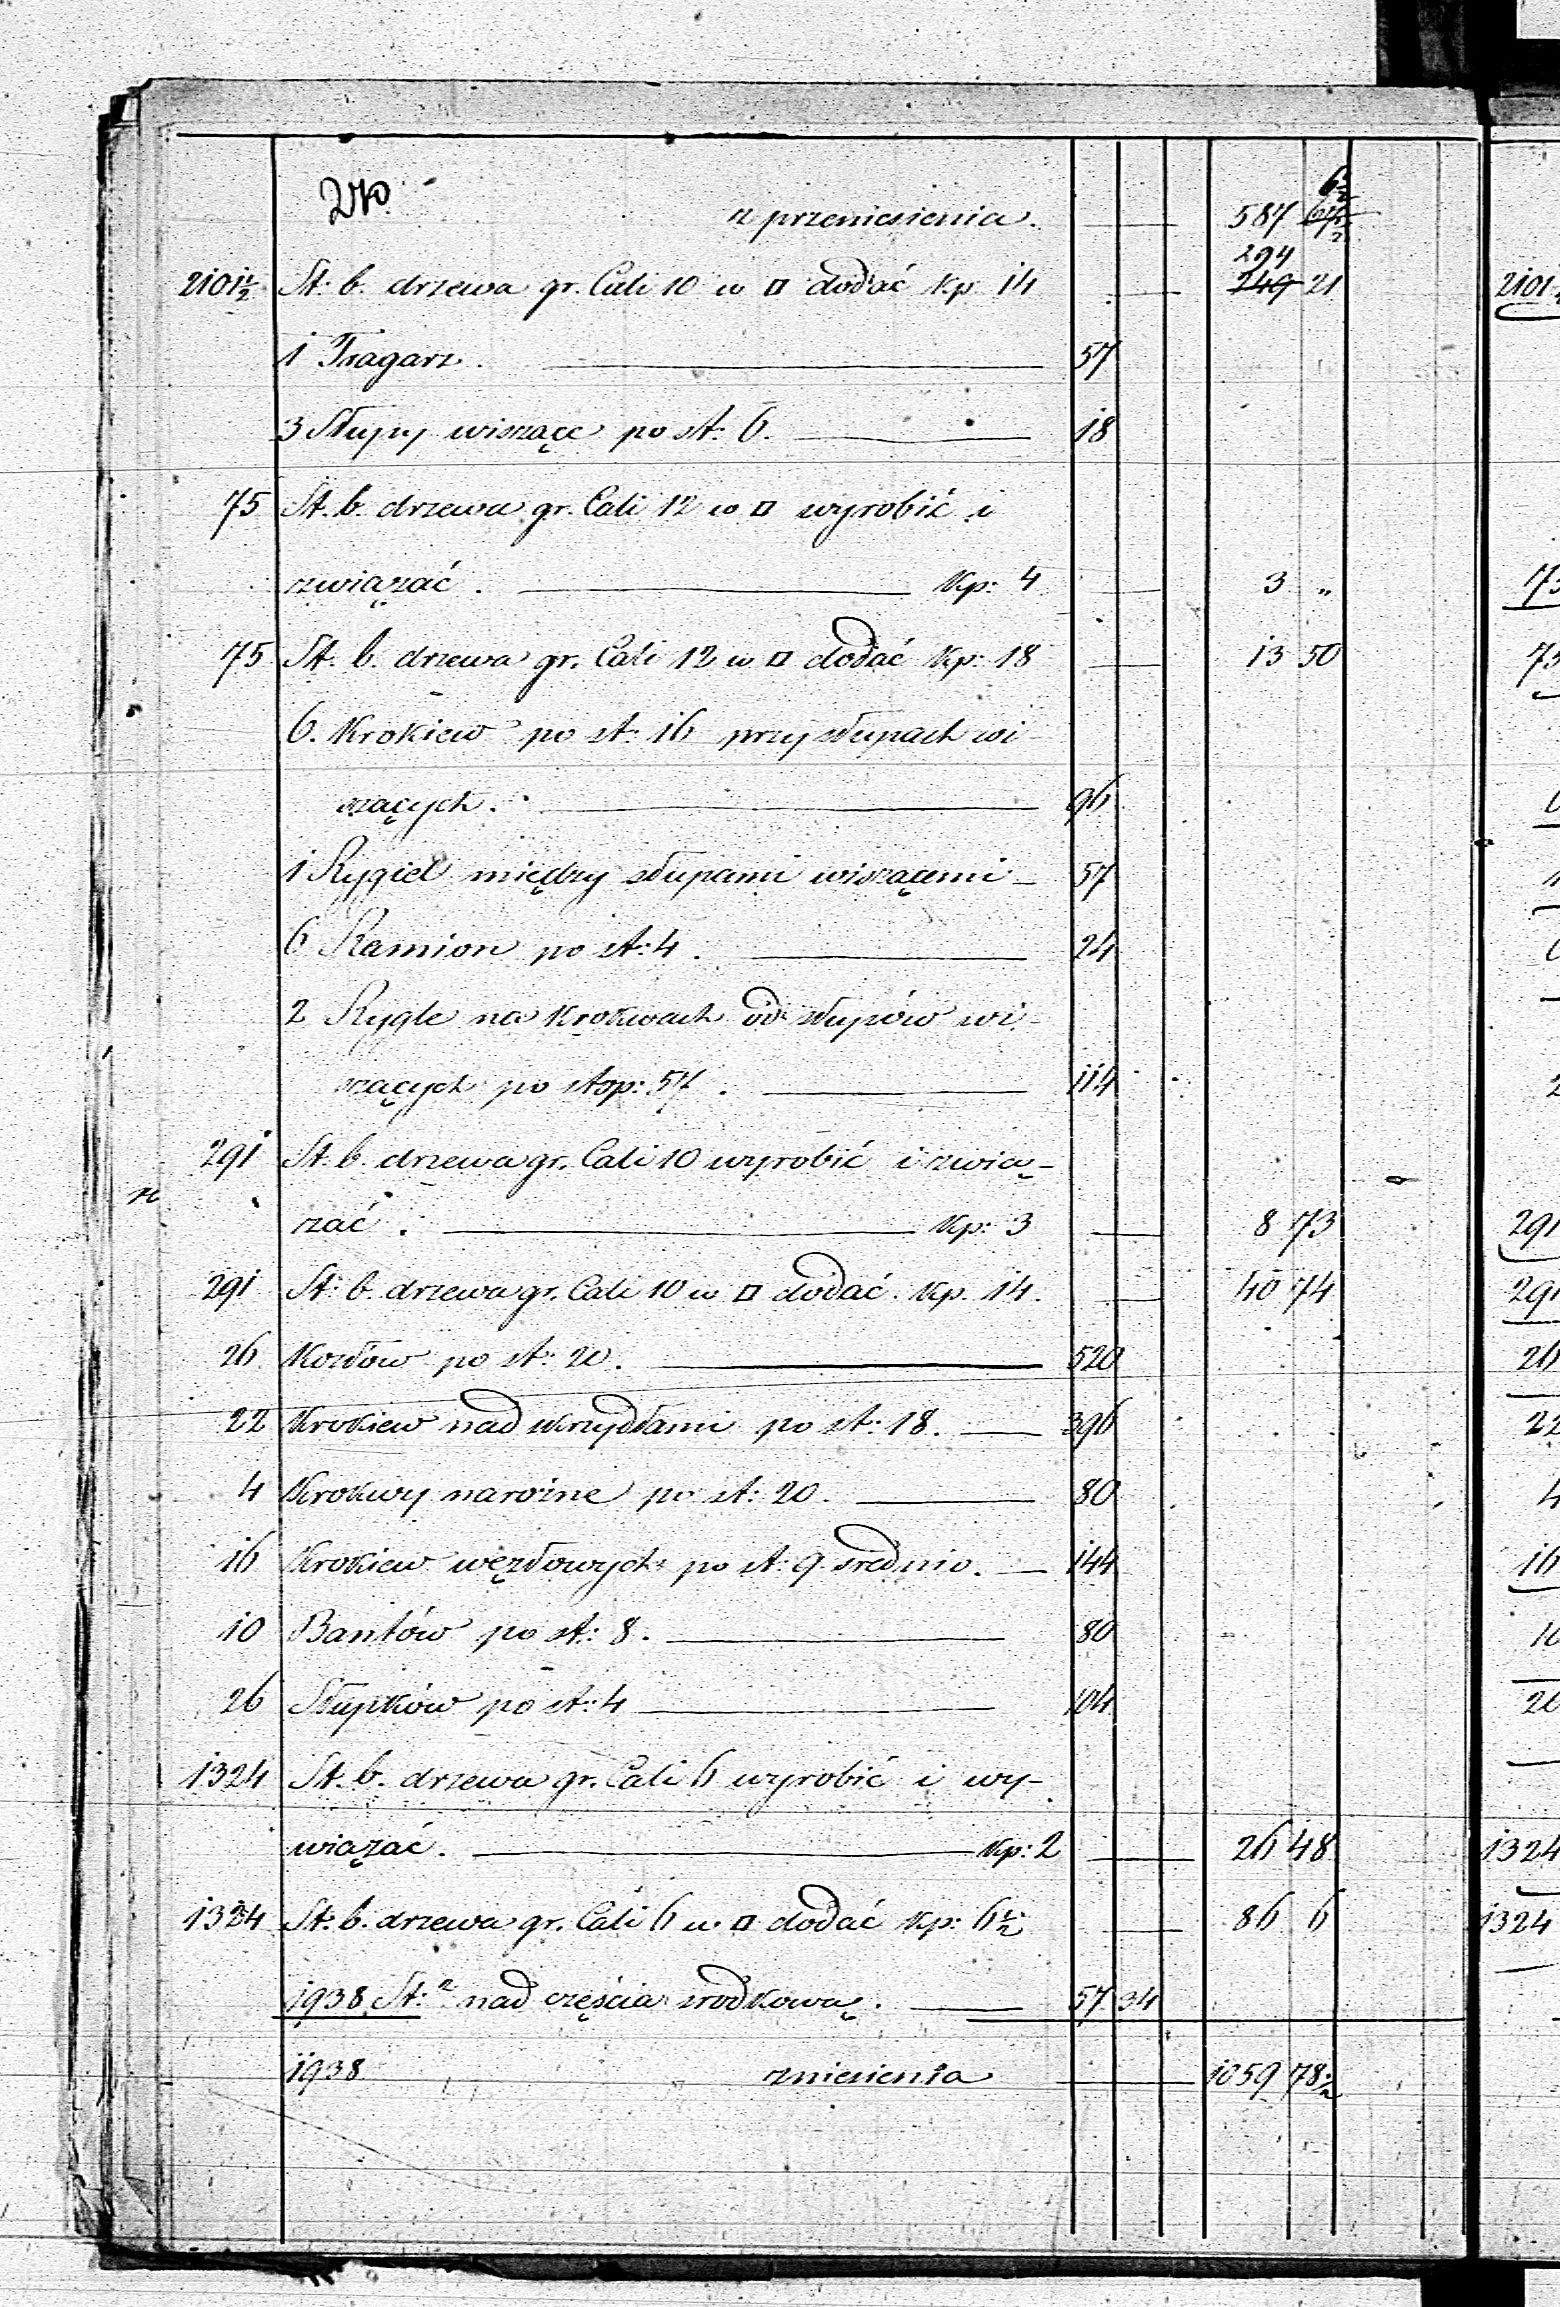 270.
z przeniesienia. 587 67½ 6½
294
2101½ St: b. drzewa gr. Cali 10 w □ dodać Kp 14 249 21
1 Tragarz. 57
3 Słupy wiszące po st: 6. 18
75 St. b. drzewa gr. Cali 12 w □ wyrobić i
związać. Kp: 4 3 „
75 St. b. drzewa gr. Cali 12 w □ dodać Kp: 18 13 50
6. Krokiew po st: 16 przy słupach wi-
szących. 96
1 Rygiel między słupami wiszącemi 57
6 Ramion po st: 4. 24
2 Rygle na krokwach od słupów wi-
szących po stop: 57. 114
291 St. b. drzewa gr. Cali 10 wyrobić i zwią-
zać. Kp: 3 8 73
291 St: b. drzewa gr. Cali 10 w □ dodać. Kp. 14. 40 74
26 Kozłow po st: 20. 520
22 Krokiew nad skrzydłami po st: 18. 396
4 Krokwy narożne po st: 20. 80
16 Krokiew węzłowych po st: 9 srednio. 144
10 Bantów po st: 8. 80
26 Słupków po st: 4 104
1324 St. b. drzewa gr. Cali 6 wyrobić i wy-
wiązać. Kp: 2 26 48
1324 St: b. drzewa gr. Cali 6 w □ dodać Kp: 6½ 86 6
1938 St: nad częścia srodkową. 57 34
1938 zniesienia 1059 78½
2101
75
75
291
291
26
22
4
16
10
26
1324
1324